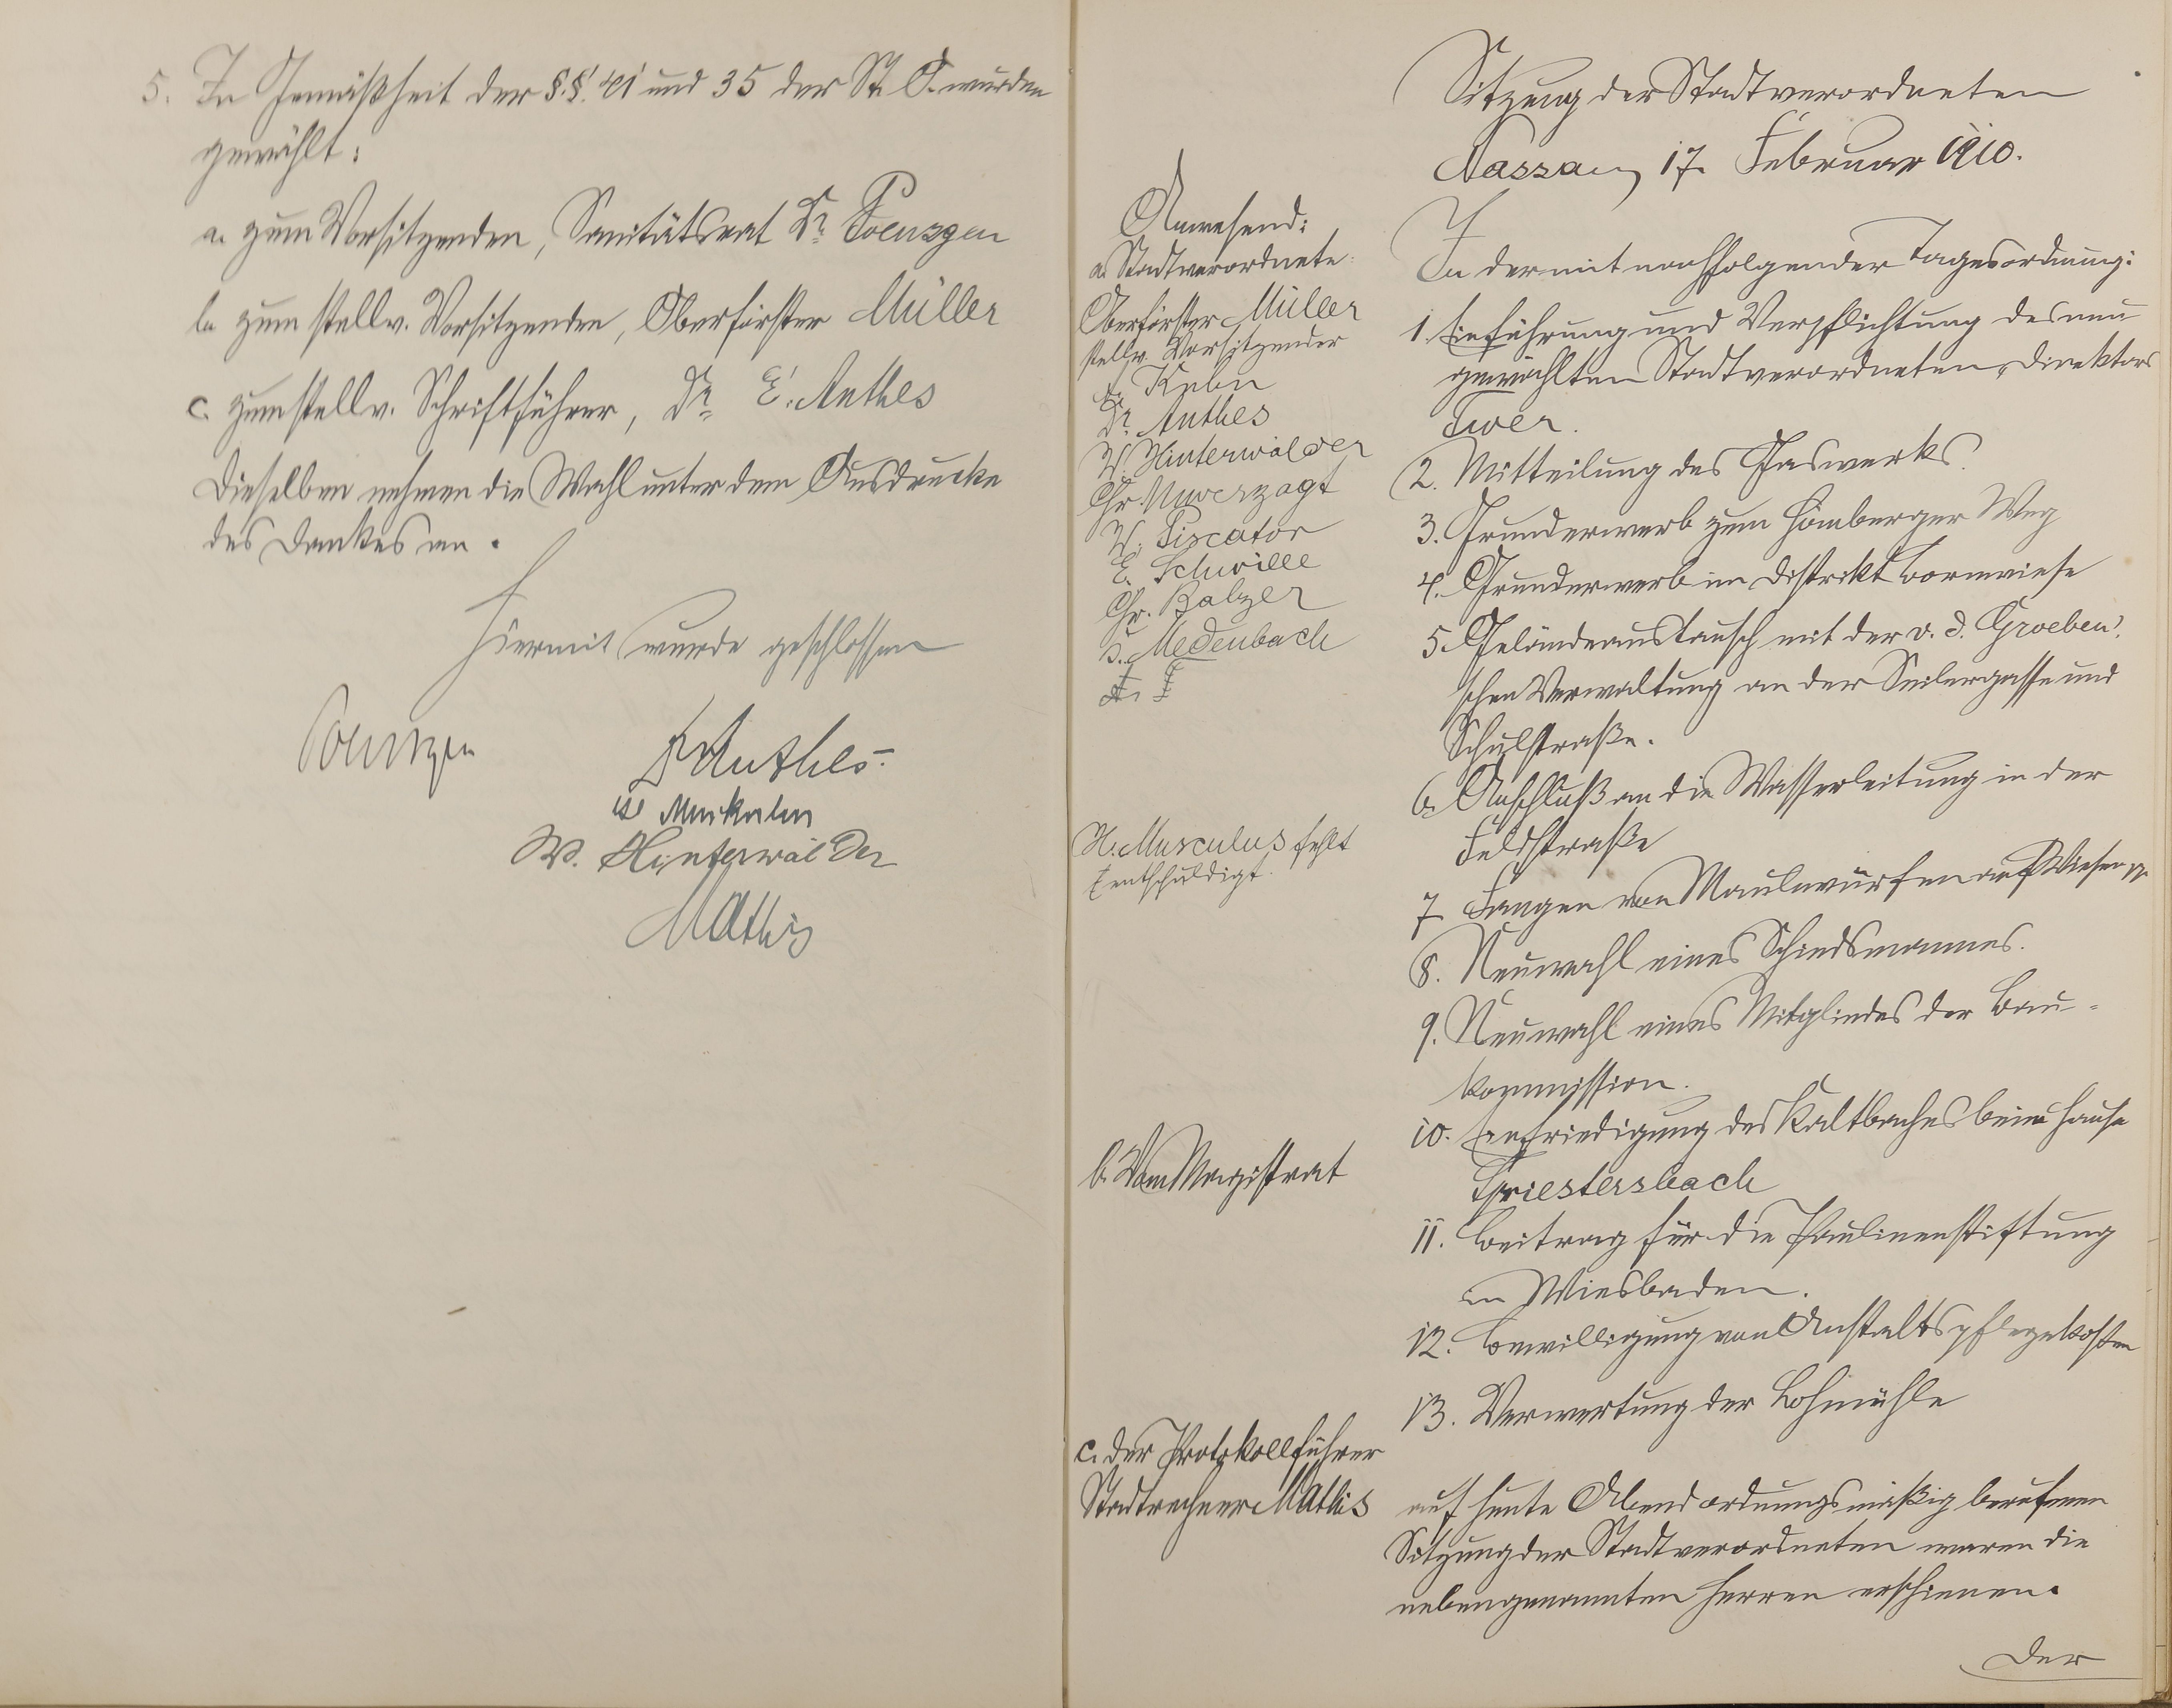 5. In Gemäßheit der §.§. 41 und 35 der St. O. wurden
gewählt:
a. zum Vorsitzenden, Sanitätsrat Dr. Poensgen
b. zum stellv. Vorsitzenden, Oberförster Müller
c. zum stellv. Schriftführer, Dr. E. Anthes
Dieselben nehmen die Wahl unter dem Ausdrucke
des Dankes an.
Hiermit wurde geschlossen
Poensgen
Anthes
W. Hinterwälder
Mathis
Sitzung der Stadtverordneten
Nassau, 17. Februar 1910.
Anwesend:
a. Stadtverordnete:
Oberförster Müller
stellv. Vorsitzender
Dr. Anthes
W. Hinterwälder
Chr. Unverzagt
W. Piscator
E. Schwille
Chr. Balzer
Medenbach
H. Musculus fehlt
entschuldigt.
b. Vom Magistrat
c. der Protokollführer
Stadtrechner Mathis
In der mit nachfolgender Tagesordnung:
1. Einführung und Verpflichtung des neu
gewählten Stadtverordneten, Direktors
2. Mitteilung des Gaswerks.
3. Grunderwerb zum Hömberger Weg
4. Grunderwerb im Distrikt Bornwiese
5. Geländeaustausch mit der v. d. Groeben'
schen Verwaltung an der Seilergasse und
Schulstraße.
6. Anschluß an die Wasserleitung in der
Feldstraße
7. Fangen von Maulwürfen auf Wiesen pp.
8. Neuwahl eines Schiedsmannes.
9. Neuwahl eines Mitgliedes der Bau-
kommission.
10. Einfriedigung des Kaltbaches beim Hause
Spriestersbach
11. Beitrag für die Paulinenstiftung
in Wiesbaden.
12. Bewilligung von Anstaltspflegekosten
13. Verwertung der Lohmühle
auf heute Abend ordnungsmäßig berufenen
Sitzung der Stadtverordneten waren die
nebengenannten Herren erschienen.
Der